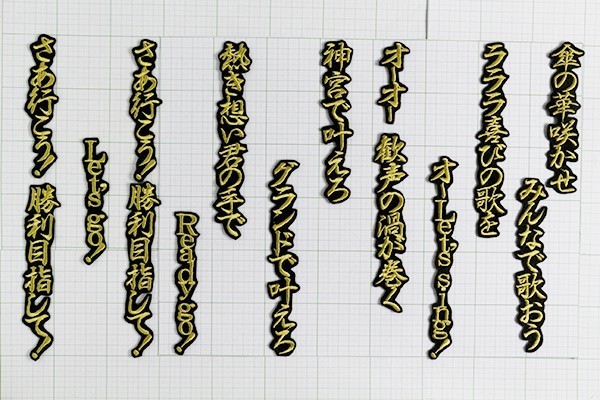 傘の華咲かせ
みんなで歌おう
ラララ喜びの歌を
オーLet's sing!
オーオー 歓声の渦が巻く
神宮で叶えろ
グランドで叶えろ
熱き想い君の手で
Ready go!
さあ行こう! 勝利目指して!
Let's go!
さあ行こう! 勝利目指して!